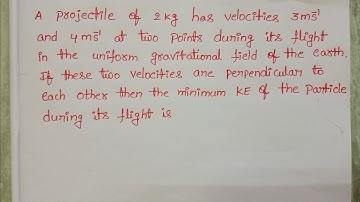 A projectile of 2 kg has velocities 3 ms⁻¹
and 4 ms⁻¹ at two points during its flight
in the uniform gravitational field of the earth.
If these two velocities are perpendicular to
each other then the minimum KE of the particle
during its flight is